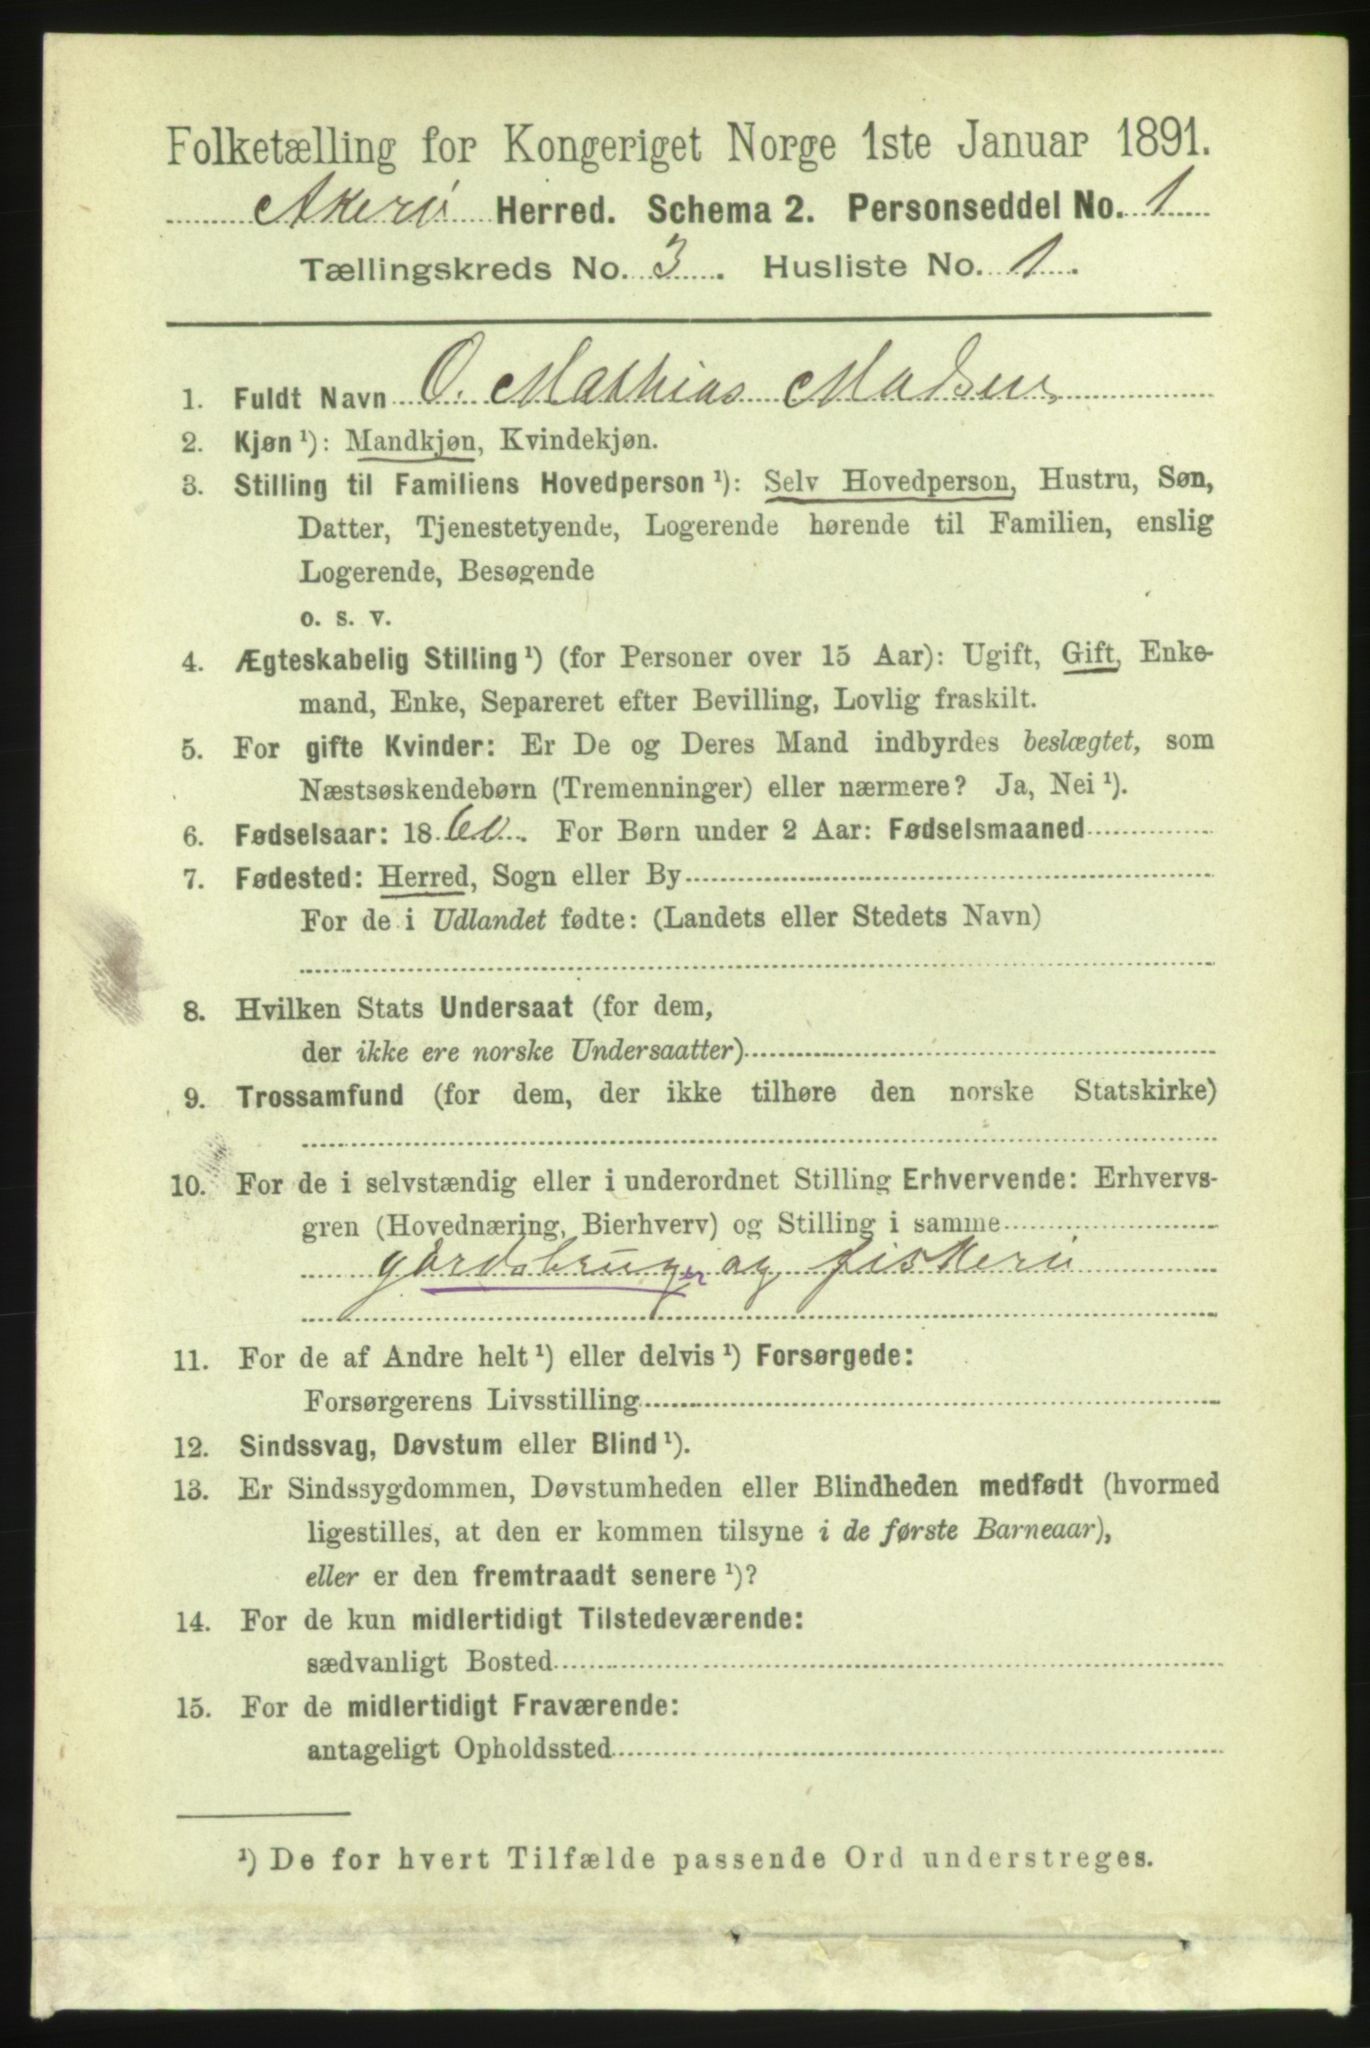 Folketælling for Kongeriget Norge 1ste Januar 1891.
Akerø Herred. Schema 2. Personseddel No. 1
Tællingskreds No. 3. Husliste No. 1.
1. Fuldt Navn O. Mathias Madsen,
2. Kjøn ¹): Mandkjøn, Kvindekjøn.
3. Stilling til Familiens Hovedperson ¹): Selv Hovedperson, Hustru, Søn,
Datter, Tjenestetyende, Logerende hørende til Familien, enslig
Logerende, Besøgende
o. s. v.
4. Ægteskabelig Stilling ¹) (for Personer over 15 Aar): Ugift, Gift, Enke-
mand, Enke, Separeret efter Bevilling, Lovlig fraskilt.
5. For gifte Kvinder: Er De og Deres Mand indbyrdes beslægtet, som
Næstsøskendebørn (Tremenninger) eller nærmere? Ja, Nei ¹).
6. Fødselsaar: 1860. For Børn under 2 Aar: Fødselsmaaned
7. Fødested: Herred, Sogn eller By
For de i Udlandet fødte: (Landets eller Stedets Navn)
8. Hvilken Stats Undersaat (for dem,
der ikke ere norske Undersaatter)
9. Trossamfund (for dem, der ikke tilhøre den norske Statskirke)
10. For de i selvstændig eller i underordnet Stilling Erhvervende: Erhvervs-
gren (Hovednæring, Bierhverv) og Stilling i samme
gårdsbruger og fiskeri
11. For de af Andre helt ¹) eller delvis ¹) Forsørgede:
Forsørgerens Livsstilling
12. Sindssvag, Døvstum eller Blind ¹).
13. Er Sindssygdommen, Døvstumheden eller Blindheden medfødt (hvormed
ligestilles, at den er kommen tilsyne i de første Barneaar),
eller er den fremtraadt senere ¹)?
14. For de kun midlertidigt Tilstedeværende:
sædvanligt Bosted
15. For de midlertidigt Fraværende:
antageligt Opholdssted
¹) De for hvert Tilfælde passende Ord understreges.